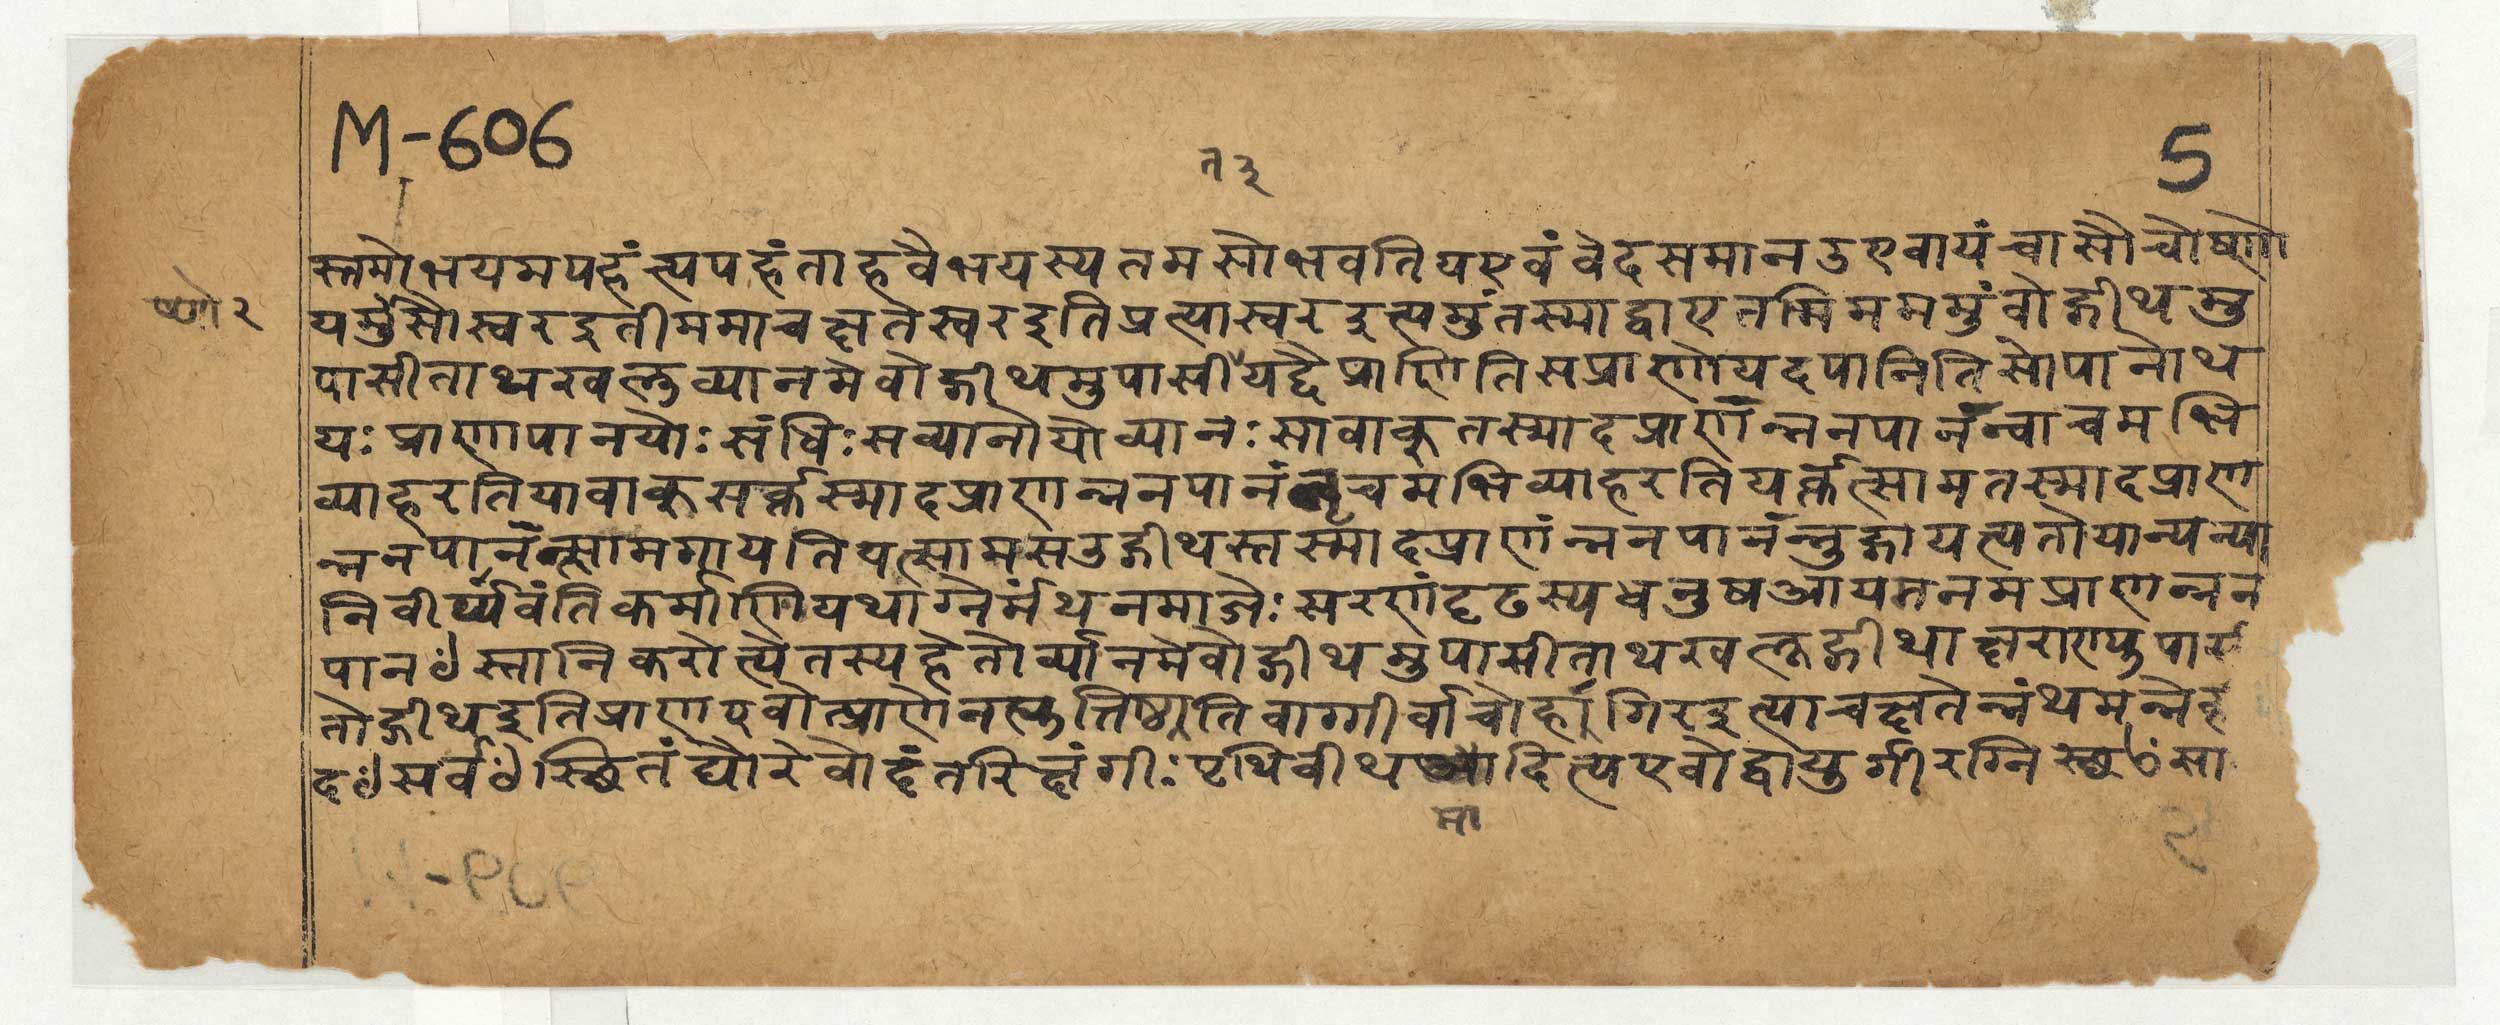 M-606
5
त ३
स्तमोभयमपहंत्यपहंताहवैभयस्यतमसोभवतियएवंवेदसमानउएवायंचासौचोष्णो
ष्णो२
यमुंसौस्वरइतीममाचक्षतेस्वरइतिप्रत्यास्वरइत्यमुंतस्माद्वाएतमिमममुंवोद्गीथमु
पासीताथखलुव्यानमेवोद्गीथमुपासीयद्वैप्राणितिसप्राणोयदपानितिसोपानोथ
यःप्राणापानयोःसंधिःसव्यानोयोव्यानःसावाक्तस्मादप्राणंन्ननपानंन्वाचमभि
व्याहरतियावाक्सर्क्तस्मादप्राणन्ननपानंचमभिव्याहरतियर्क्तत्सामतस्मादप्राण
न्ननपानंत्सामगायतियत्सामसउद्गीथस्तस्मादप्राणंन्ननपानंन्नुद्गायत्यतोयान्यन्या
निवीर्य्यवंतिकर्माणियथाग्नेर्मंथनमाजेःसरणंदृढस्यधनुषआयमनमप्राणन्नन
पानꣳस्तानिकरोत्येतस्यहेतोर्व्यानमेवोद्गीथमुपासीताथखलूद्गीथाक्षराण्युपासी
तोद्गीथइतिप्राणएवोत्प्राणेनह्युत्तिष्ठतिवाग्गीर्वाचोर्हागिरइत्याचक्षतेन्नंथमन्नेही
दꣳसर्वꣳस्छितंद्यौरेवोदंतरिक्षंगीःपृथिवीथआदित्यएवोद्वायुर्गीरग्निस्छꣳसा
मा